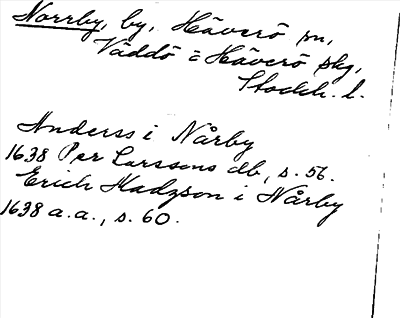 Norrby, by, Häverö sn,
Väddö o Häverö skg,
Stockh. l.
Anderss i Nårby
1638 Per Larssons db, s. 56.
Erich Madzson i Nårby
1638 a.a., s. 60.